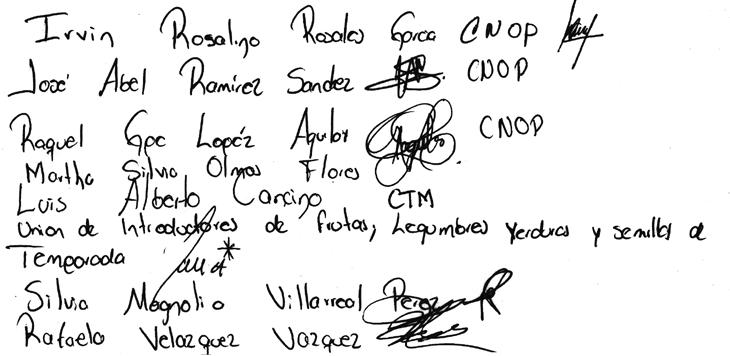 Irvin Rosalino Rosales Garcia CNOP
José Abel Ramírez Sandez CNOP
Raquel Gpe Lopéz Aguilar CNOP
Martha Silvia Olmos Flores
Luis Alberto Cancino CTM
Union de Introductores de frutas, Legumbres Verduras y semillas de
Temporada
Silvia Magnolia Villarreal Perez
Rafaela Velazquez Vazquez